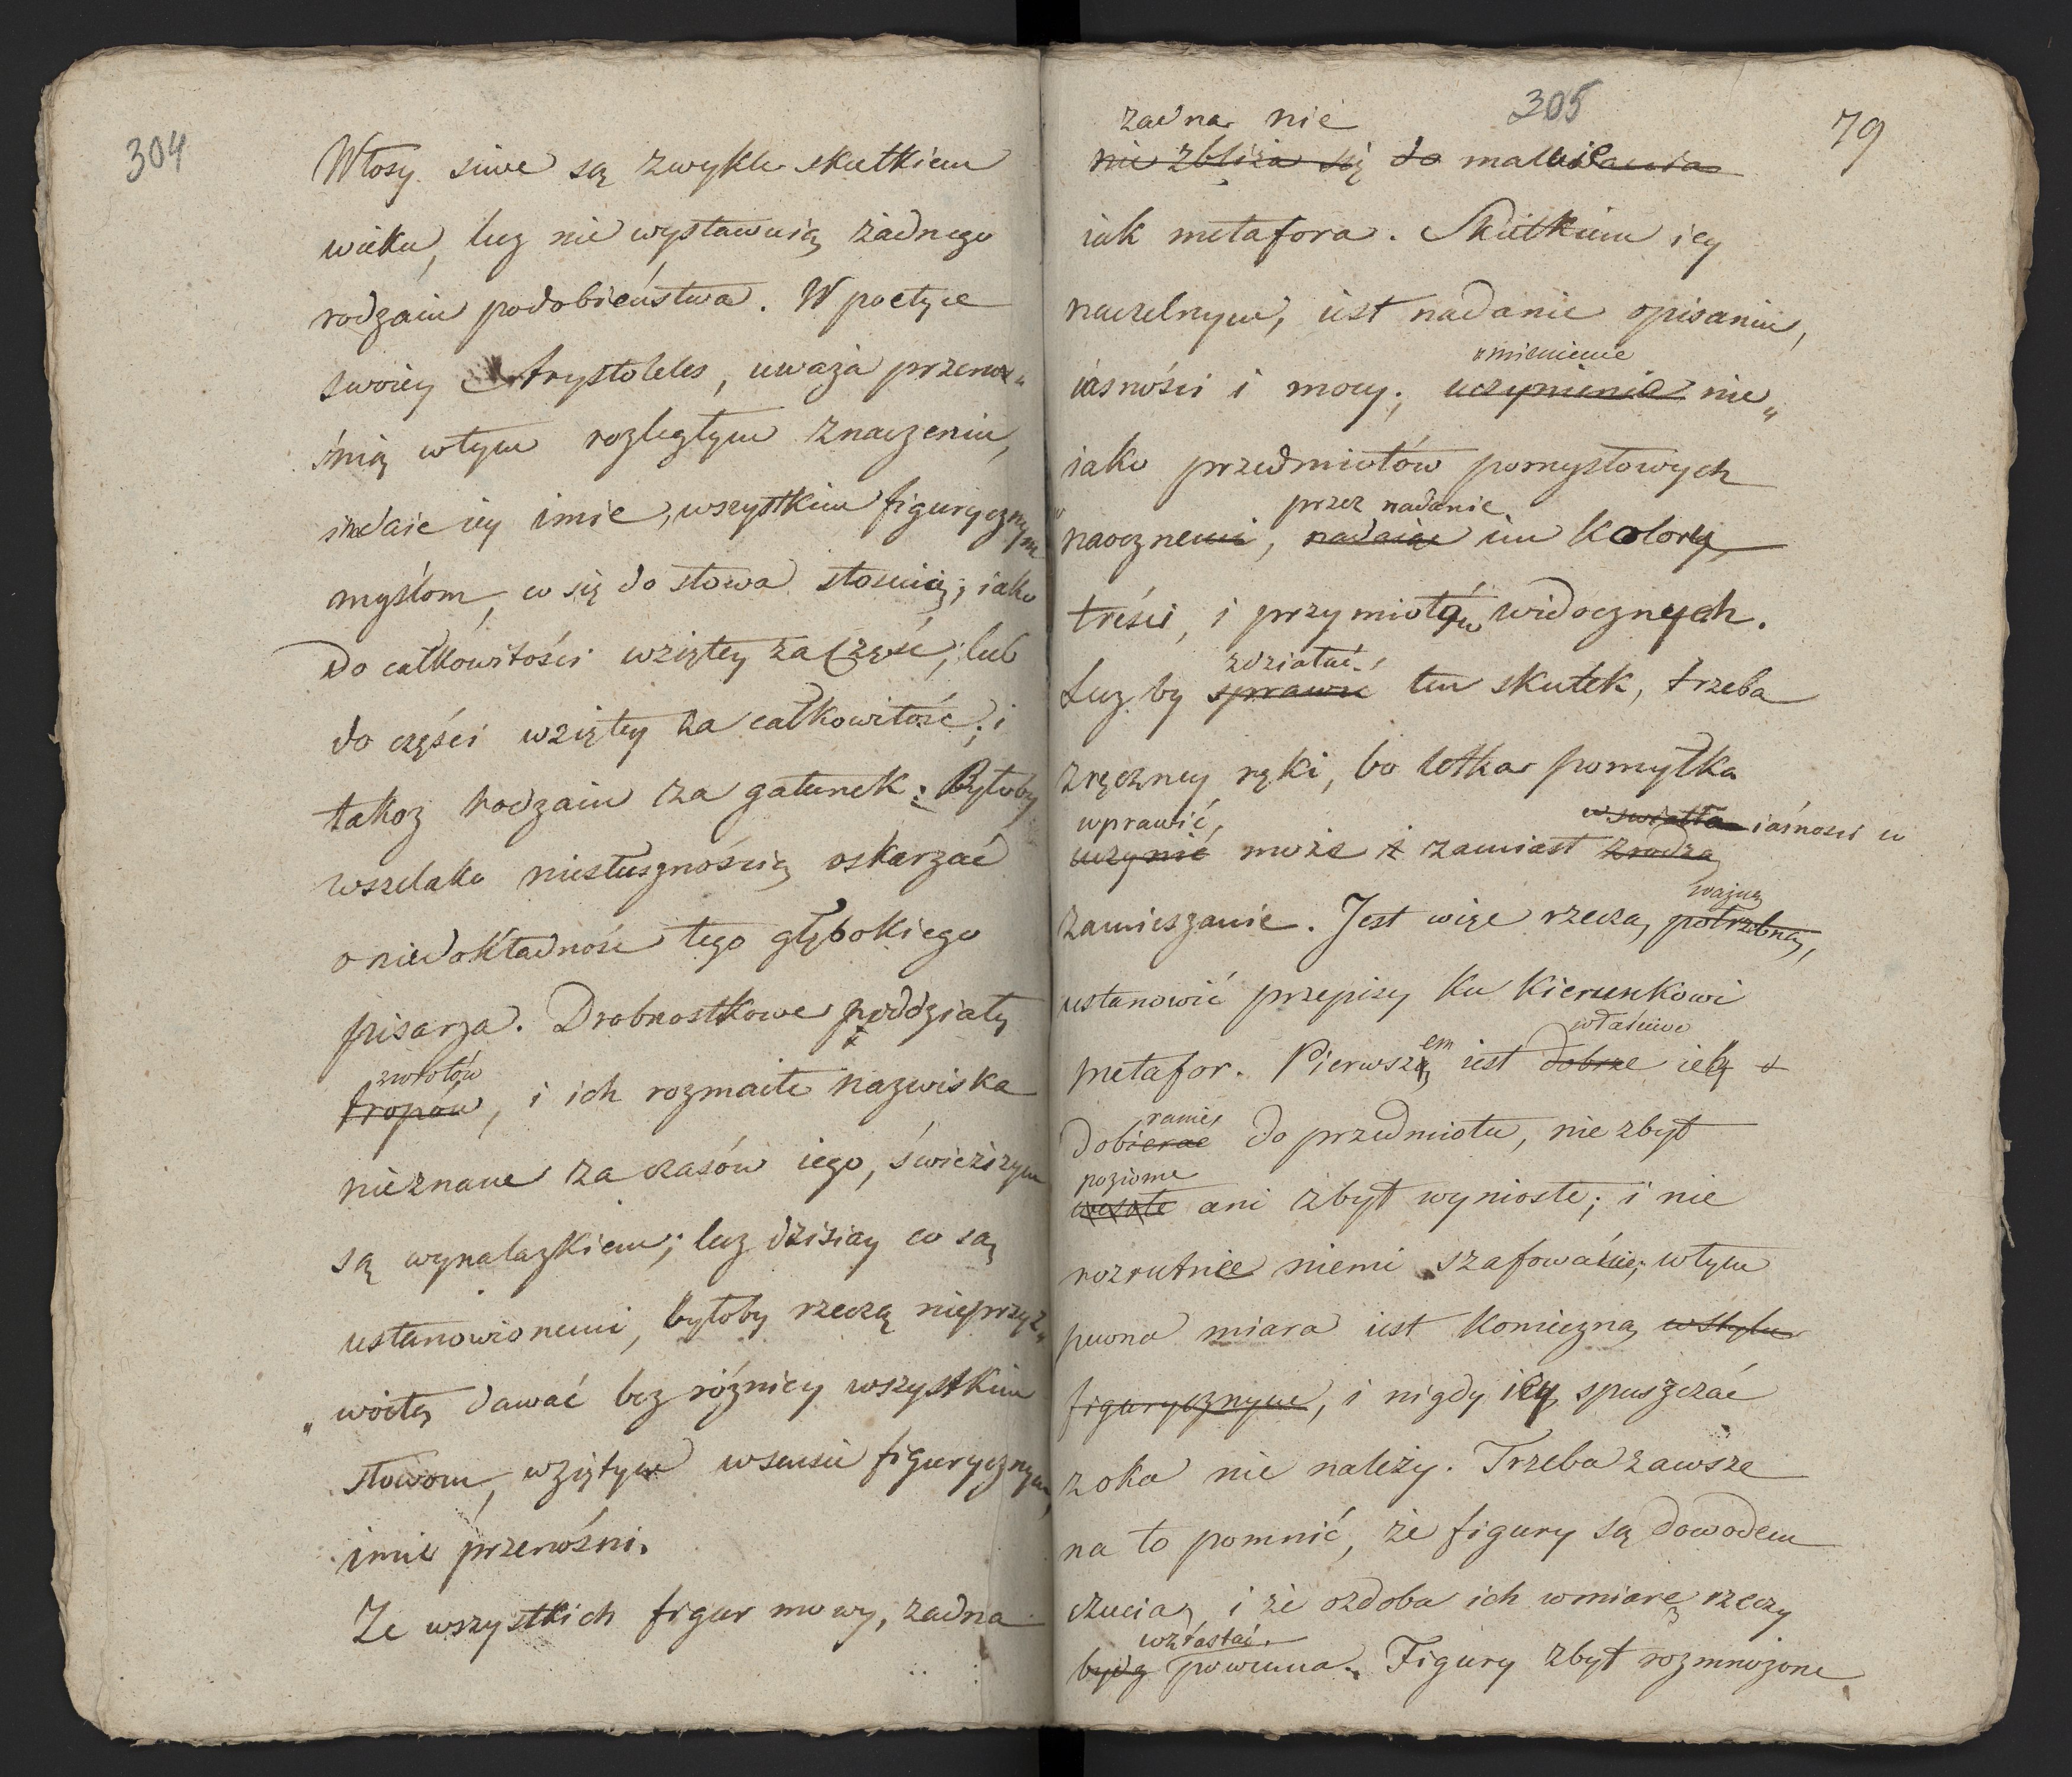 304
Włosy siwe są zwykle skutkiem
wieku, lecz nie wystawuią żadnego
rodzaiu podobieństwa. W poetyce
swoiey Arystoteles, uważa przeno„
śnią wtym rozległym znaczeniu,
i nadaie iey imie, wszystkim figurycznym
myślom, co się do słowa stosuią; iako
do całkowitości wziętey za część; lub
do części wziętey za całkowitość; i
takoż rodzaiu za gatunek: Byłoby
wszelako niesłusznością oskarzać
o niedokładność tego głębokiego
pisarza. Drobnostkowe poddziały
zwrotów
tropów, i ich rozmaite nazwiska
nieznane za czasów iego, świeższym
są wynalazkiem; lecz dzisiay co są
ustanowionemi, byłoby rzeczą nieprzyz„
„woitą dawać bez różnicy wszystkim
słowom, wziętym wsensie figurycznym,
imie przenośni.
Ze wszystkich figur mowy, żadna
305
79
żadna nie
nie zbliża się do maluie
iak metafora. Skutkiem iey
naczelnym, iest nadanie opisaniu,
umienienie
iasności i mocy; uczynienie nie„
iako przedmiotów pomysłowych
przez nadanie
„naocznemi, nadaiąc im kolory,
treści, i przymiotów widocznych.
zdziałać
Lecz by sprawić ten skutek, trzeba
zręczney ręki, bo letka pomyłka
w światła iasności w
wprawić,
uczynić może i zamiast zrodza
ważną
zamieszanie. Jest więc rzeczą potrzebną,
ustanowić przepisy ku kierunkowi
właściwe
metafor. Pierwszem iest dobrze ich
ranie,
Dobierać do przedmiotu, nie zbyt
poziome
wesołe ani zbyt wyniosłe; i nie
rozrutnie niemi szafowanie; wtym
pewna miara iest konieczną wstylu
figurycznym, i nigdy iey spuszczać
z oka nie należy. Trzeba zawsze
na to pomnić, że figury są dowodem
czucia, i że ozdoba ich wmiarę rzeczy
wzrastać
bydz powinna. Figury zbyt rozmnożone